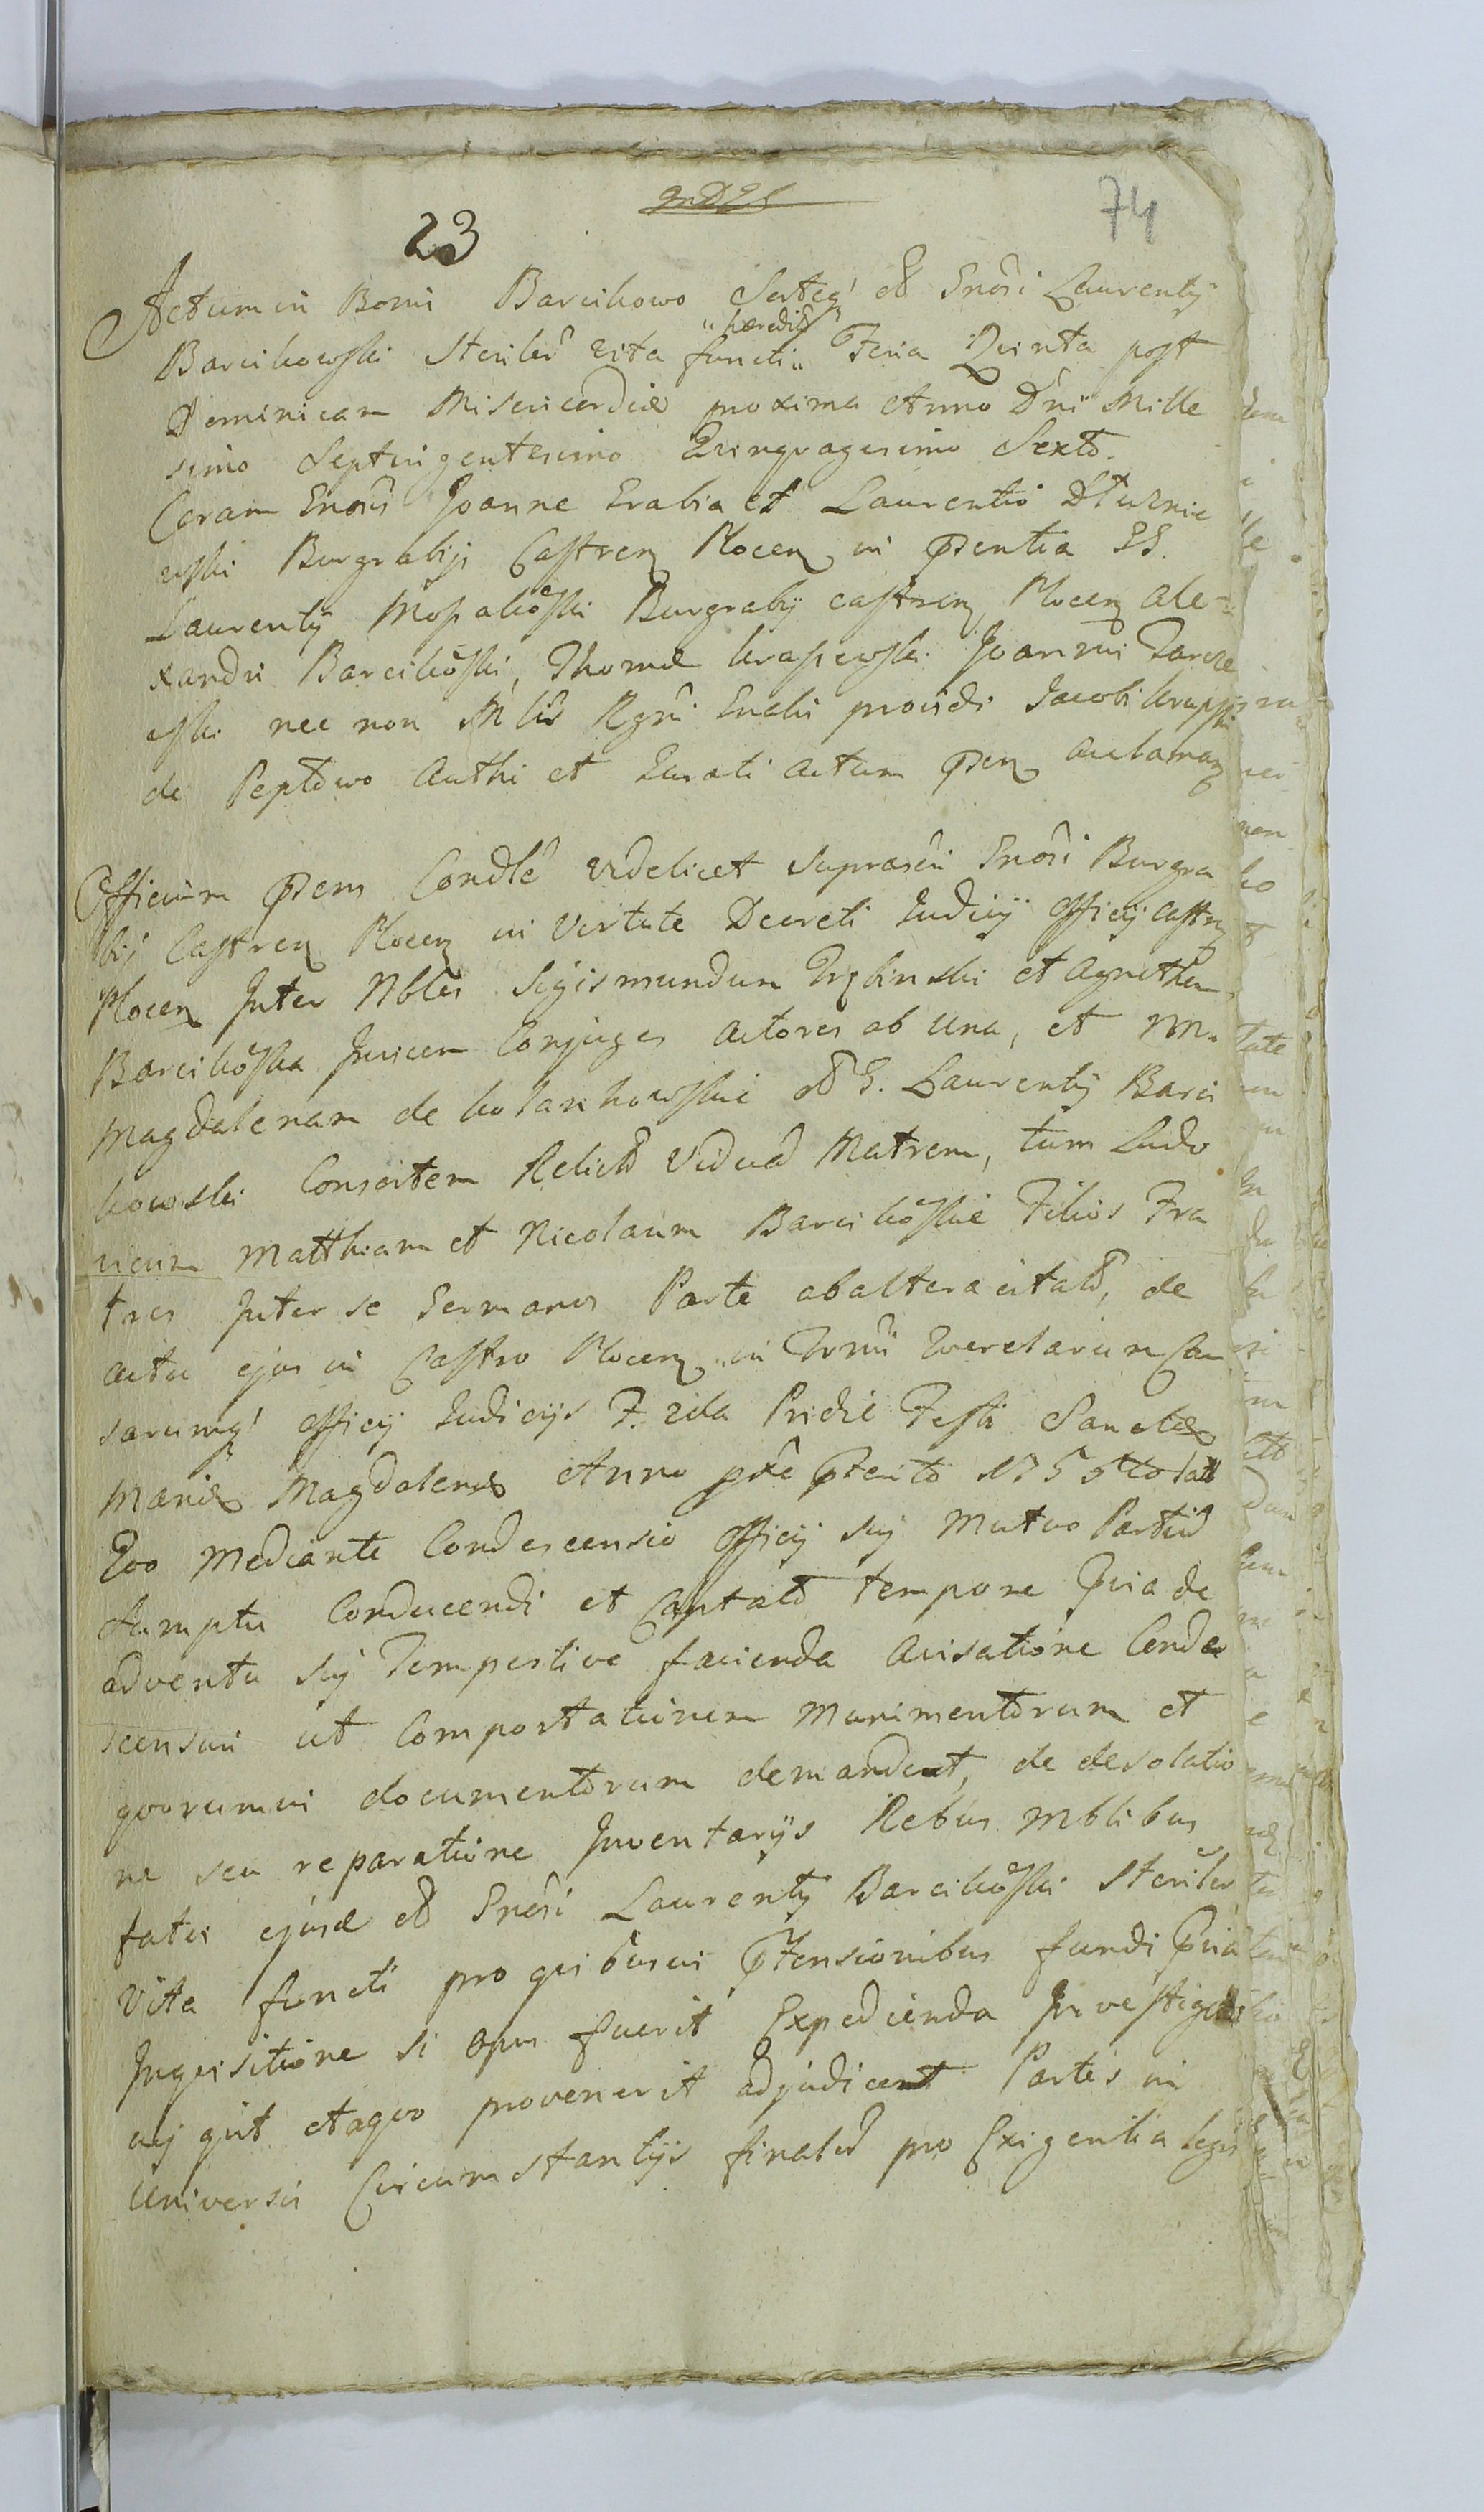 23
74
Actum in Bonis Barcikowo Sorteq' olim Gnosi Laurentij
"hæredis"
Barcikowski Steriler vita functi Feria Quinta post
Dominicam Misericordiæ proxima Anno Dni Mille
simo Septingentesimo Quinquagesimo Sexto.
Coram Gnosis Joanne Grabia et Laurentio
ewski Burgrabijs Castren Plocen in Pntia GG.
Laurentij Mossakoski Burgrabij castren Plocen Ale-
xandri Barcikoski, Thomæ Krasewski Joannis
wski nec non Mlis Rgni Gnalis providi Jacobi
de Peptowo Authi et Jurati actum pnen acclaman
Officium Pens Condle videlicet suprascri Gnosi Burgra
bij Castren Plocen in virtute Decreti Judicij Officij castren
Plocen Inter Nbles Sigismundum et Agnethem
Barcikoska Invicem Conjuges actores ab una, et MM.
Magdalenam de olim G. Laurentij Barci
kowski Consortem Relicta Vidua Matrem, tum Ludo
vicum Matthiam et Nicolaum Barcikoskie Filios Fra
tres Inter se Germanos Parte ab altera citatos, de
actu ejus in Castro Plocen in Trnis Querelarum Cau
sarumq' officij Judicijs F. 2da Pridie Festi Sanctæ
Mariæ Magdalenæ Anno pxe Pterito 1755to lati
Quo Mediante Condescensio officij sui Mutuo Partium
sumptu Conducendi et Captato tempore Pvia de
adventu sui Tempestive facienda avisatione Conde
scensuri ut Comportationem Munimentorum et
quorumvis documentorum demandent, de desolatio
ne seu reparatione Inventarijs Rebus Mblibus
fatis ejusd olim Gnosi Laurentij Barcikoski Steriler
vita functi pro quibusvis Ptensionibus fundi Pvia
Inquisitione si opus fuerit Expedienda Investigent
cuj quit et a quo provenerit adjudicent Partes in
Universis Circumstantijs finaliter pro Exigentia legis